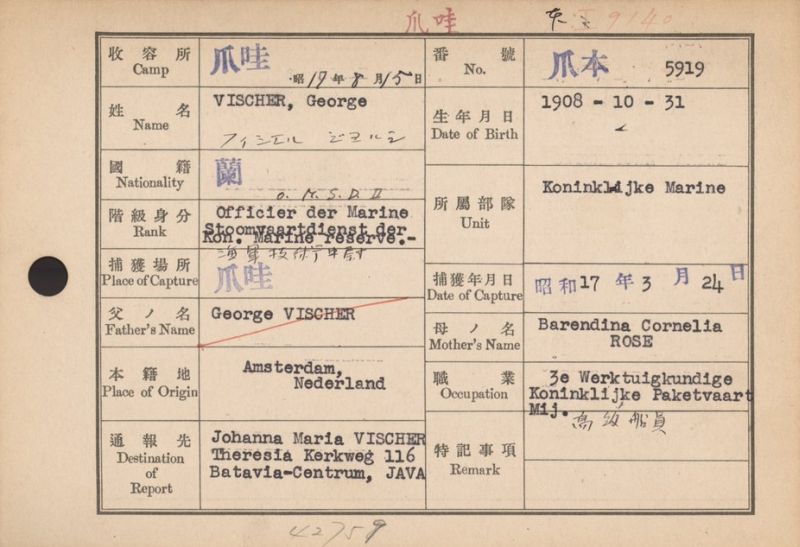 爪哇
9140
收容所
Camp
爪哇
昭17年8月15日
番號
No.
爪本 5919
姓名
Name
VISCHER, George
フィシエル ジヨルジ
生年月日
Date of Birth
1908 - 10 - 31
國籍
Nationality
蘭
所屬部隊
Unit
Koninklijke Marine
階級身分
Rank
O. M. S. D. II
Officier der Marine
Stoomvaartdienst der
Kon. Marine reserve.-
海軍技術中尉
捕獲場所
Place of Capture
爪哇
捕獲年月日
Date of Capture
昭和17年3月24日
父ノ名
Father's Name
George VISCHER
母ノ名
Mother's Name
Barendina Cornelia
ROSE
本籍地
Place of Origin
Amsterdam,
Nederland
職業
Occupation
3e Werktuigkundige
Koninklijke Paketvaart
Mij.
高級船員
通報先
Destination
of
Report
Johanna Maria VISCHER
Theresia Kerkweg 116
Batavia-Centrum, JAVA
特記事項
Remark
42759